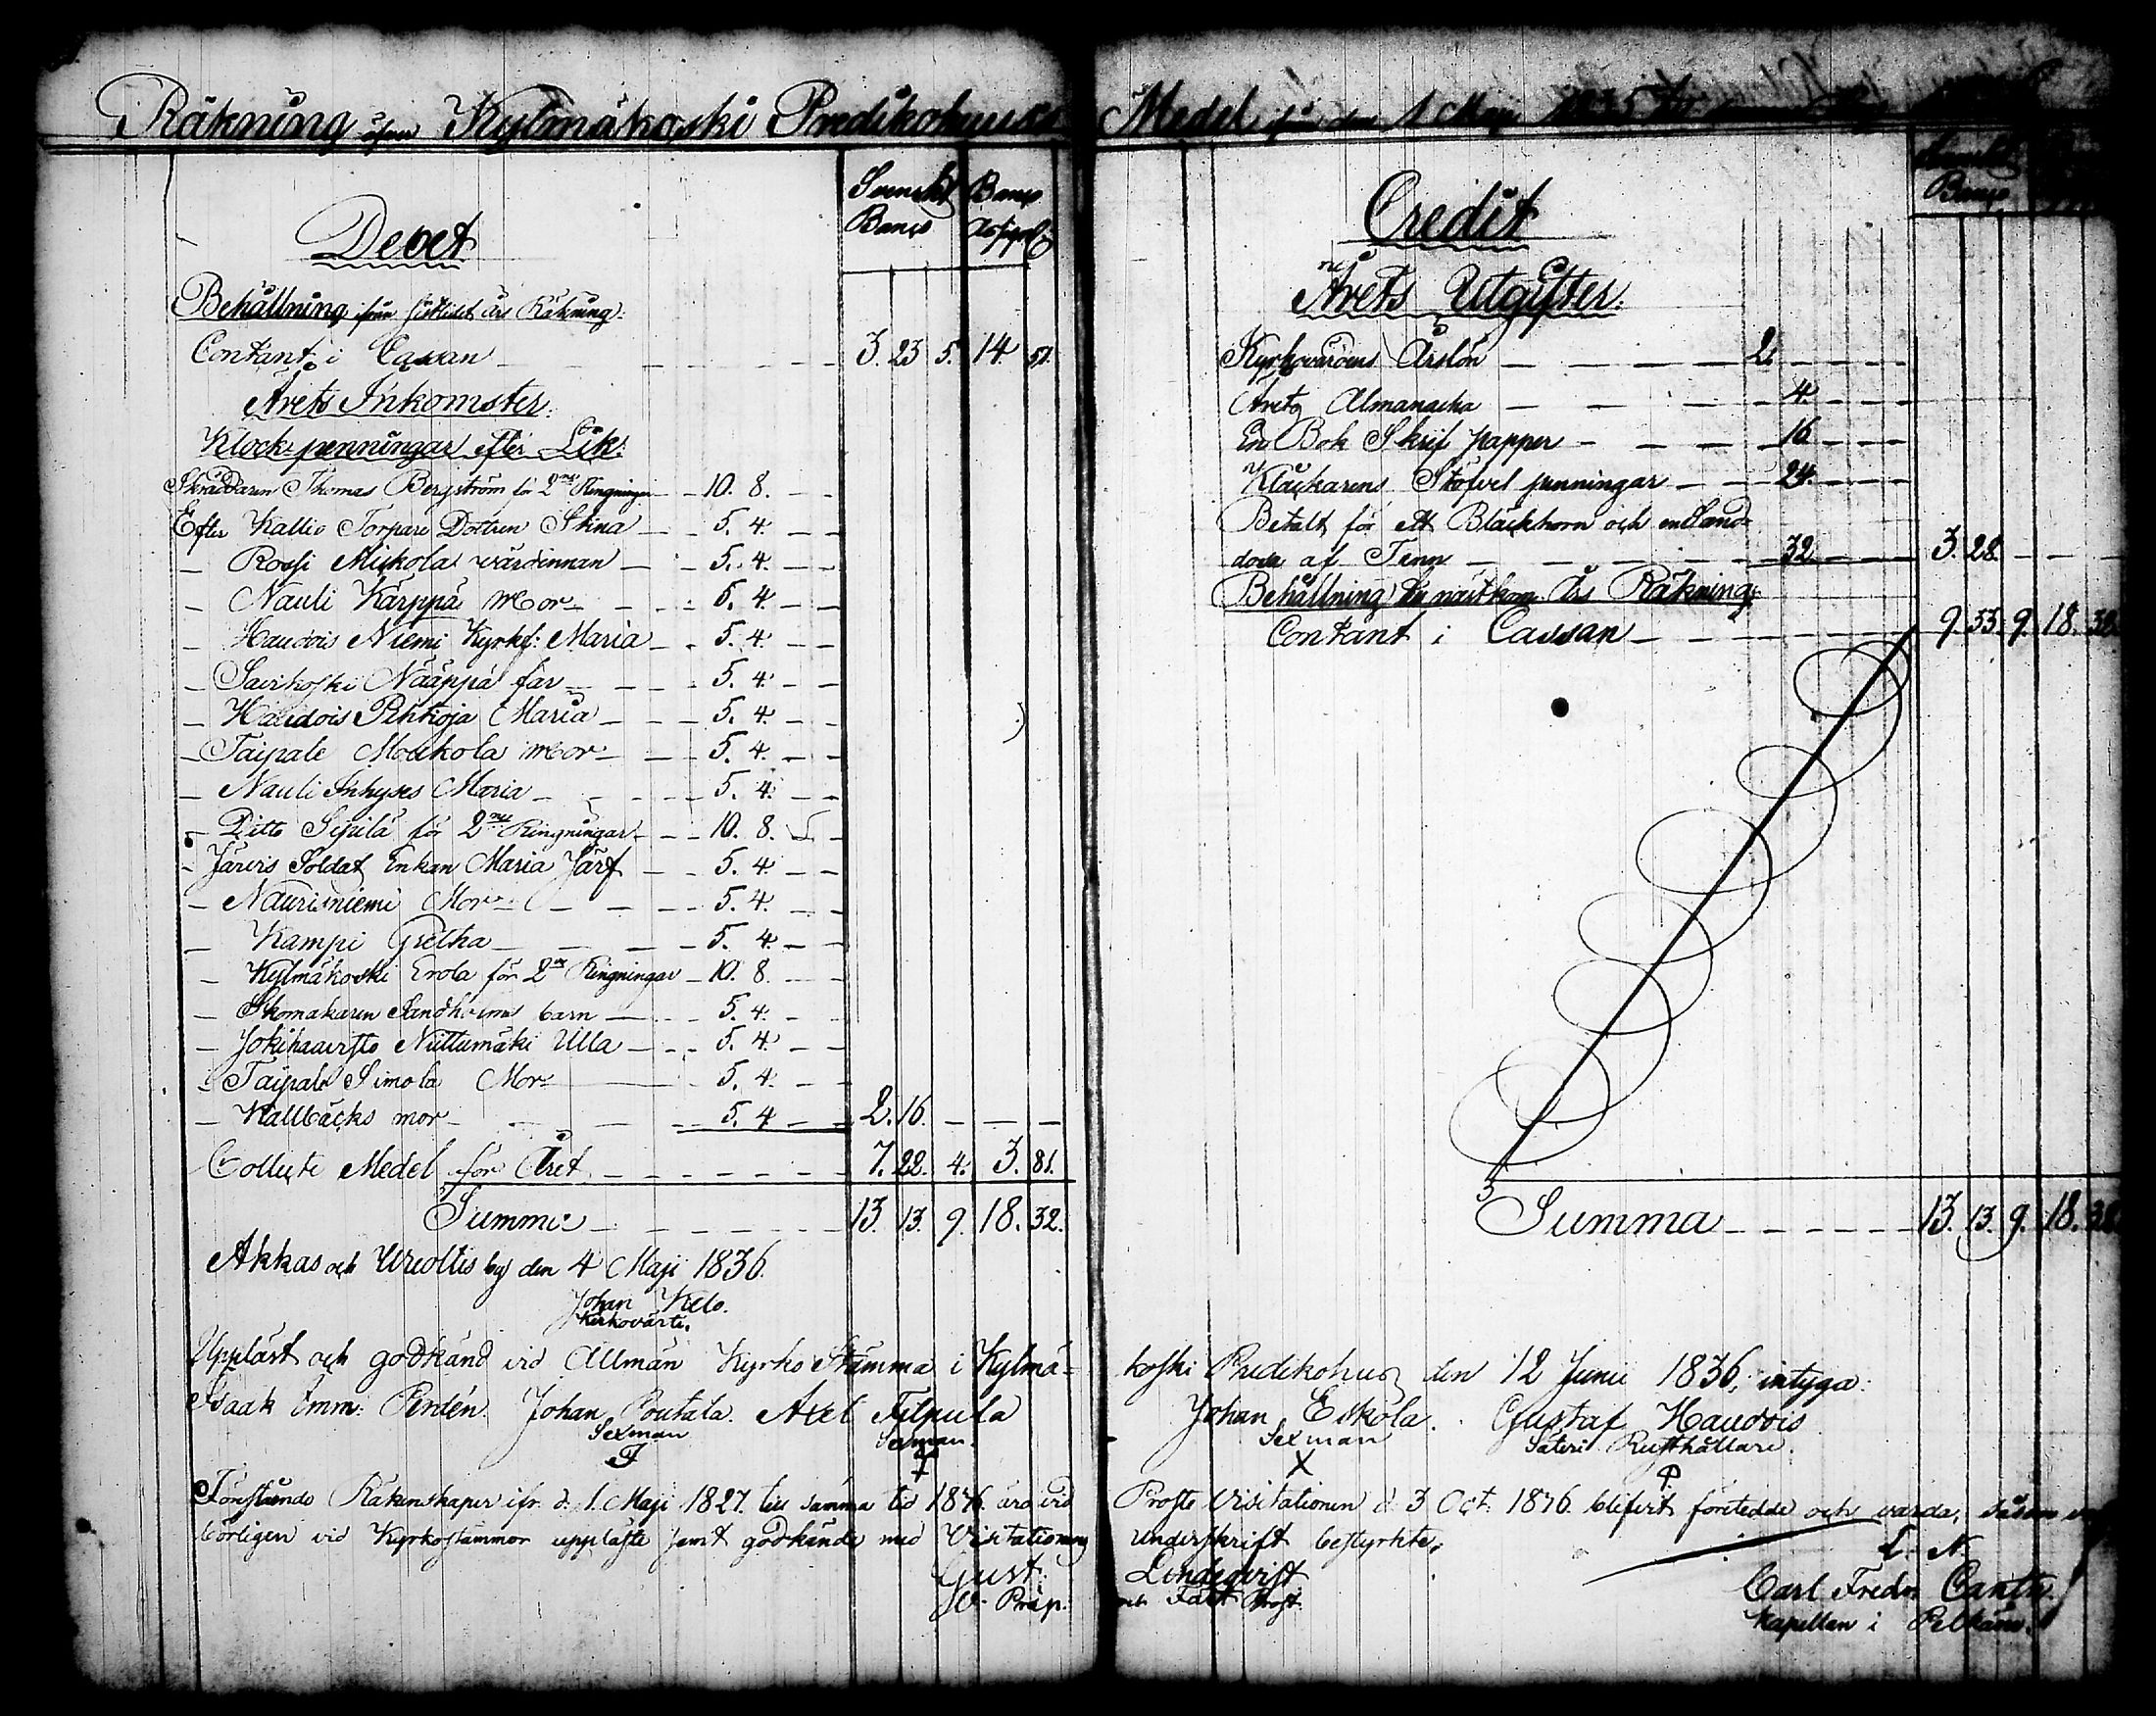 Räkning öfver Kylmäkoski Predikohuses Medel från den 1 Maji 1835
Svenskt Banco
Banco Assign:
Debet
Behållning ifrån förflidet års Räkning:
Contant i Cassan 3. 23 5. 14. 51.
Årets Inkomster:
Klock-penningar efter Lik:
Skräddaren Thomas Bergström för 2ne Ringningar 10. 8.
Efter Kallio Torpare Dottren Stina 5. 4.
— Rossi Mickola värdinnan 5. 4.
— Nauli Kärppä Mor 5. 4.
— Haudois Niemi Kyrkf: Maria 5. 4.
— Savikoski Nääppä far 5. 4.
— Haudois Pihtioja Maria 5. 4.
— Taipale Moukola Mor 5. 4.
— Nauli Inhyses Maria 5. 4.
— Ditto Sipilä för 2ne Ringningar 10. 8.
— Järvis Soldat Enkan Maria Järf 5. 4.
— Naurisniemi Mor 5. 4.
— Kampi Gretha 5. 4.
— Kylmäkoski Erola för 2ne Ringningar 10. 8.
— Skomakaren Sandholms barn 5. 4.
— Jokihaavisto Niittumäki Ulla 5. 4.
— Taipale Simola Mor 5. 4.
— Kallbäcks mor 5. 4 2. 16.
Collecte Medel för Året 7. 22. 4. 3. 81.
Summa 13. 13. 9. 18. 32.
Akkas och Ureoltis by den 4 Maji 1836.
Johan Kelo.
Kirkovärti.
Svenskt Banco
Credit
Årets Utgifter:
Kyrkovärdens Årslön 2.
Årets Almanacka 4.
En Bok Skrif papper 16
Klåckarens Stöfvel penningar 24.
Betalt för ett Bläckhorn och en Sand=
dosa af Tenn 32. 3. 28.
Behållning till nästkom: Års Räkning:
Contant i Cassan 9. 33. 9. 18. 32.
Summa 13. 13. 9. 18. 32.
Uppläst och godkänd vid Allmän Kyrko Stämma i Kylmä=koski Predikohus den 12 Junii 1836, intyga:
Isaak Emm: Perdén. Johan Poutala. Axel Filpula Johan Eskola. Gustaf Haudois
Sexman Sexman. Sexman Säteri Rusthållare.
Föreståënde Räkenskaper ifr. d. 1. Maji 1827. till samma tid 1836. äro vid Prosts Visitationen d. 3 Oct. 1836. blifvit företedde och varda, såsom
vörligen vid Kyrkostämmor uppläste samt godkände med Visitations Underskrift bestyrkte.
Gust: Lindeqvist
V. Præp. och Fält Prost.
L. N.
Carl Fredr Canth.
Kapellan i Pelkäne.